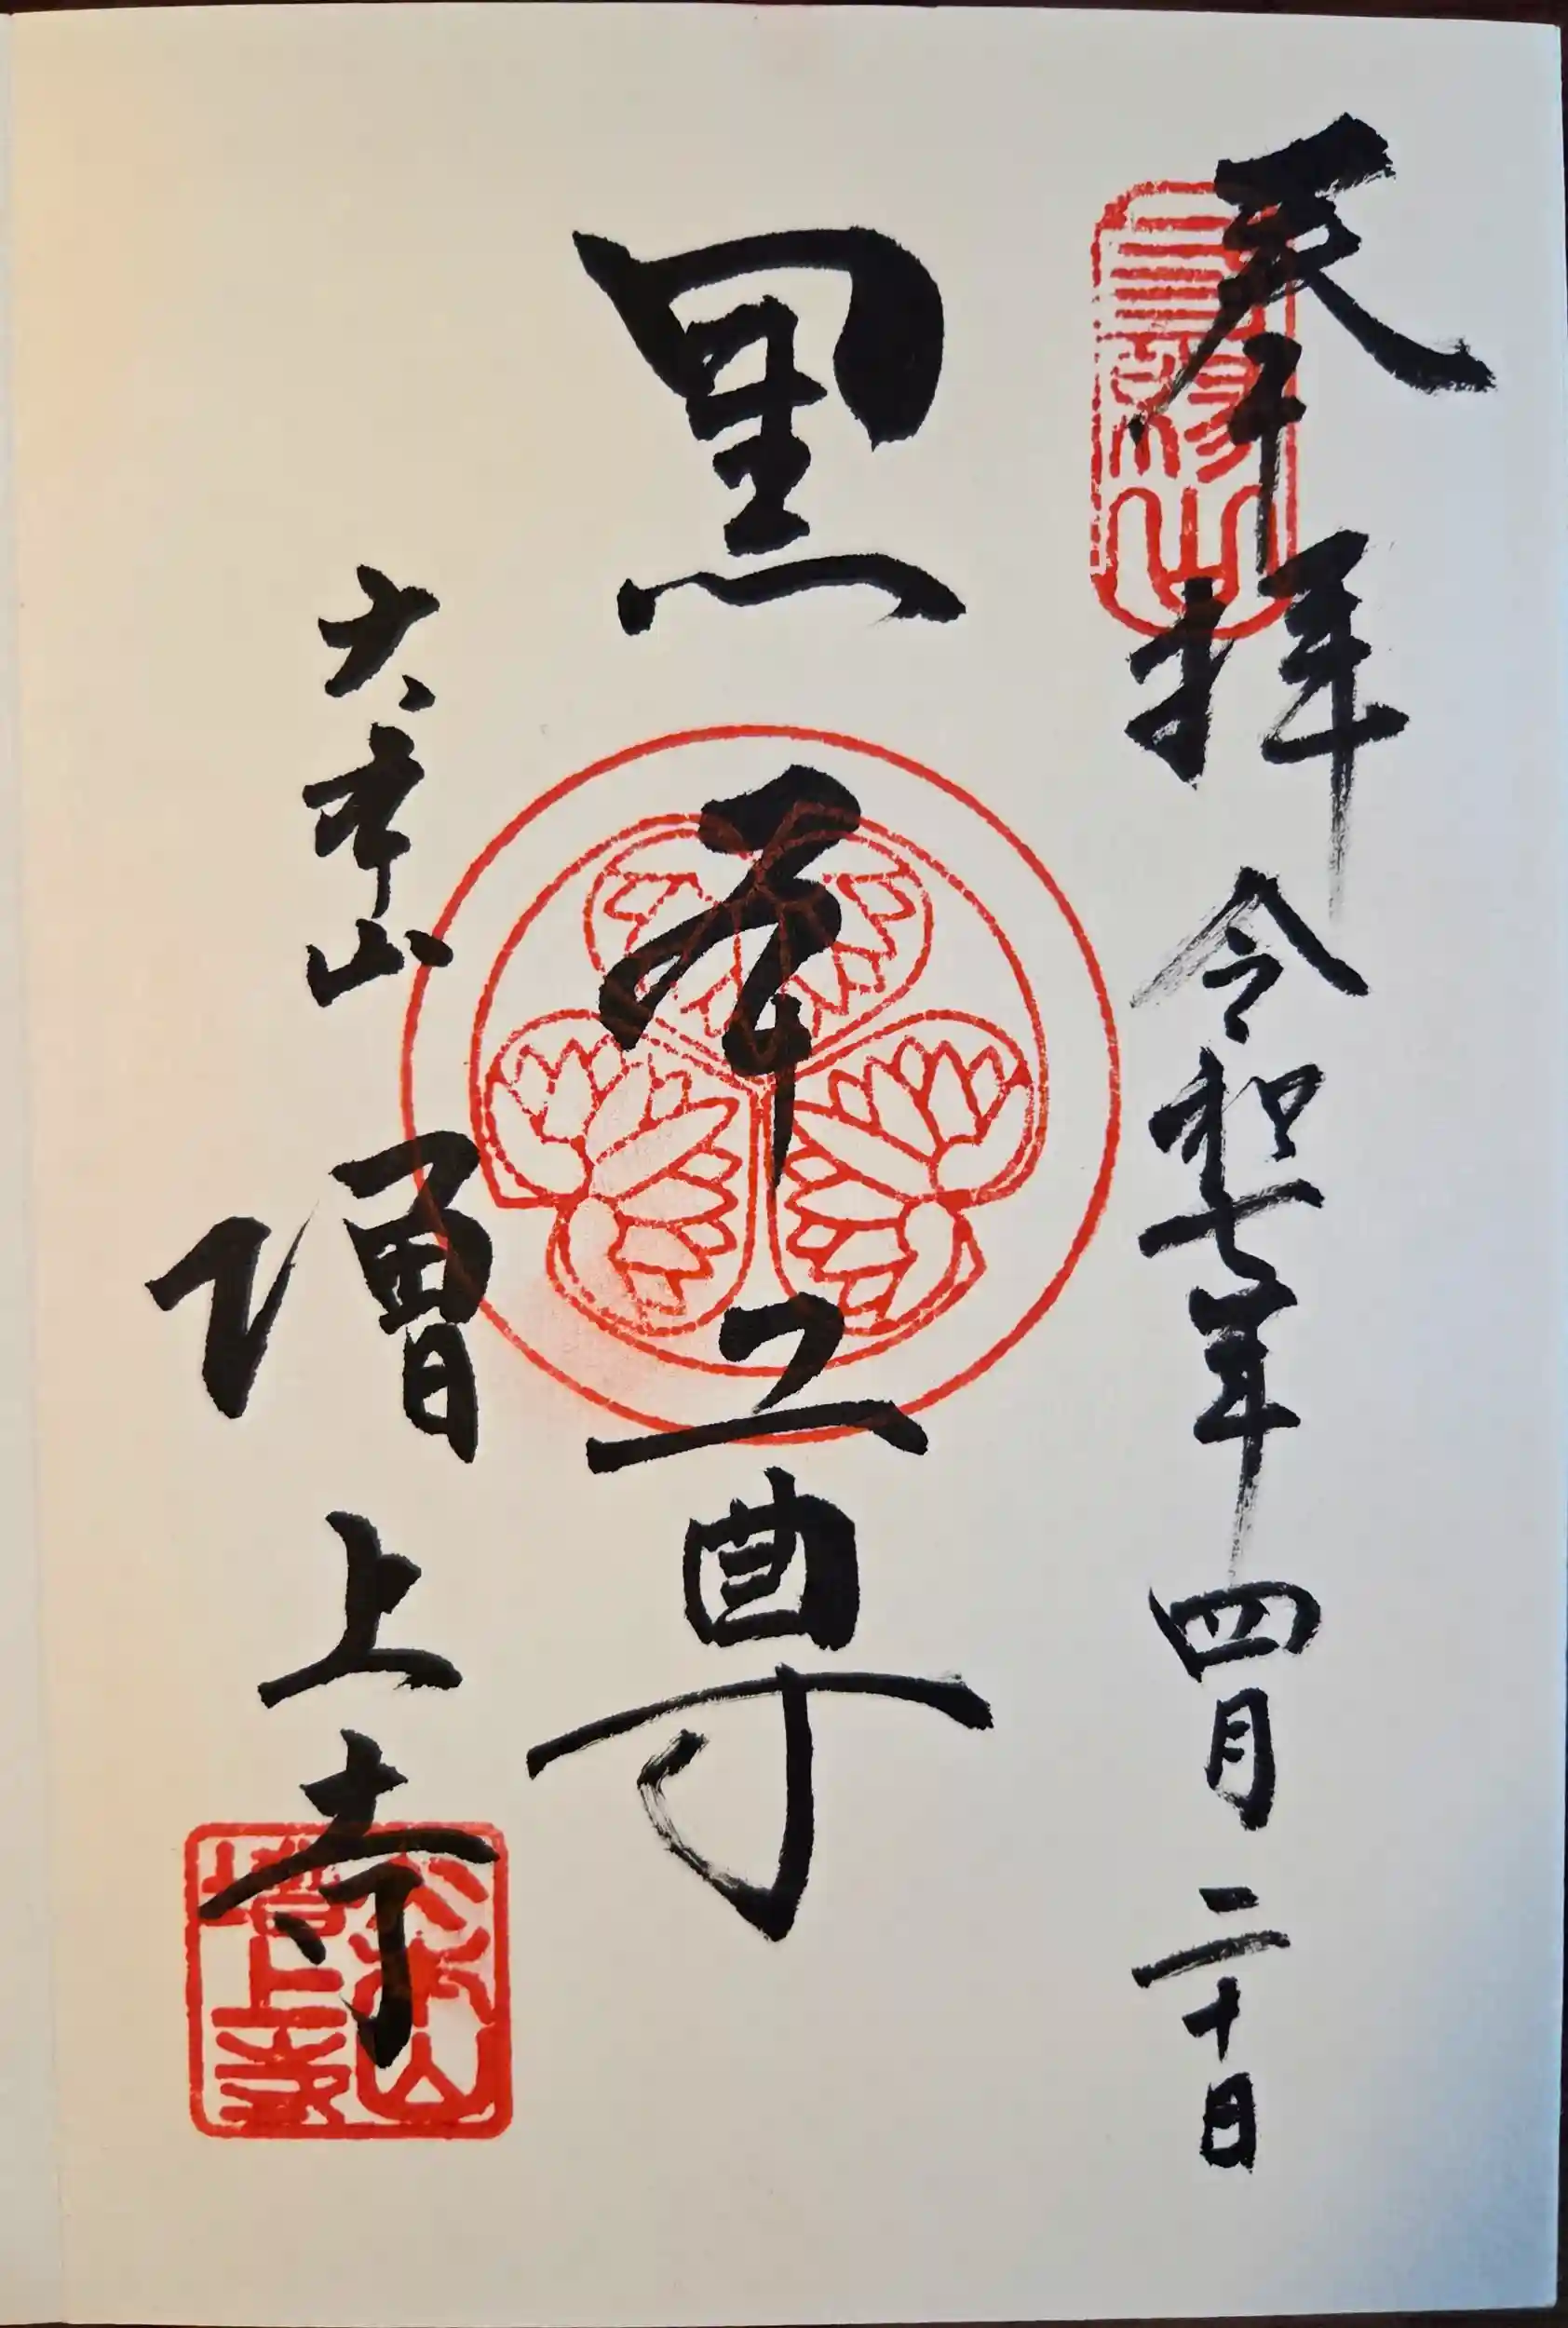 奉拝 令和七年四月二十日
黒本尊
大本山 増上寺
三縁山
大本山増上寺